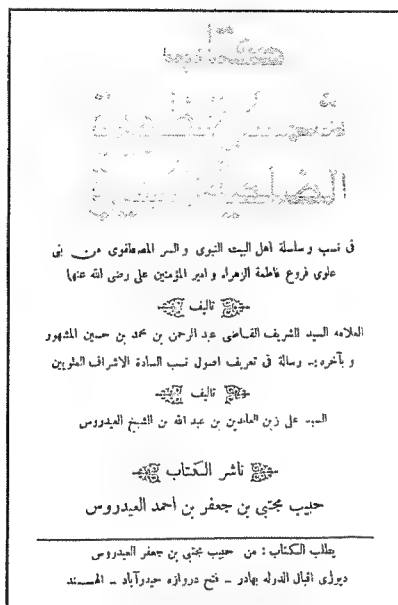 فى نسب وسلسلة اهل البيت النبوى و السر المصطفوى من بنى
علوى فروع فاطمة الزهراء و امير المؤمنين على رضى الله عنهما
تاليف
العلامه السيد الشريف القاضى عبد الرحمن بن محمد بن حسين المشهور
و بآخره :ـ رسالة فى تعريف اصول نسب السادة الاشراف العلويين
تاليف
السيد على زين العابدين بن عبد الله بن الشيخ العيدروس
ناشر الكتاب
حبيب مجتبى بن جعفر بن احمد العيدروس
يطلب الكتاب : من حبيب مجتبى بن جعفر العيدروس
ديوڑى اقبال الدوله بهادر ـ فتح دروازه حيدرآباد ـ الهـــند